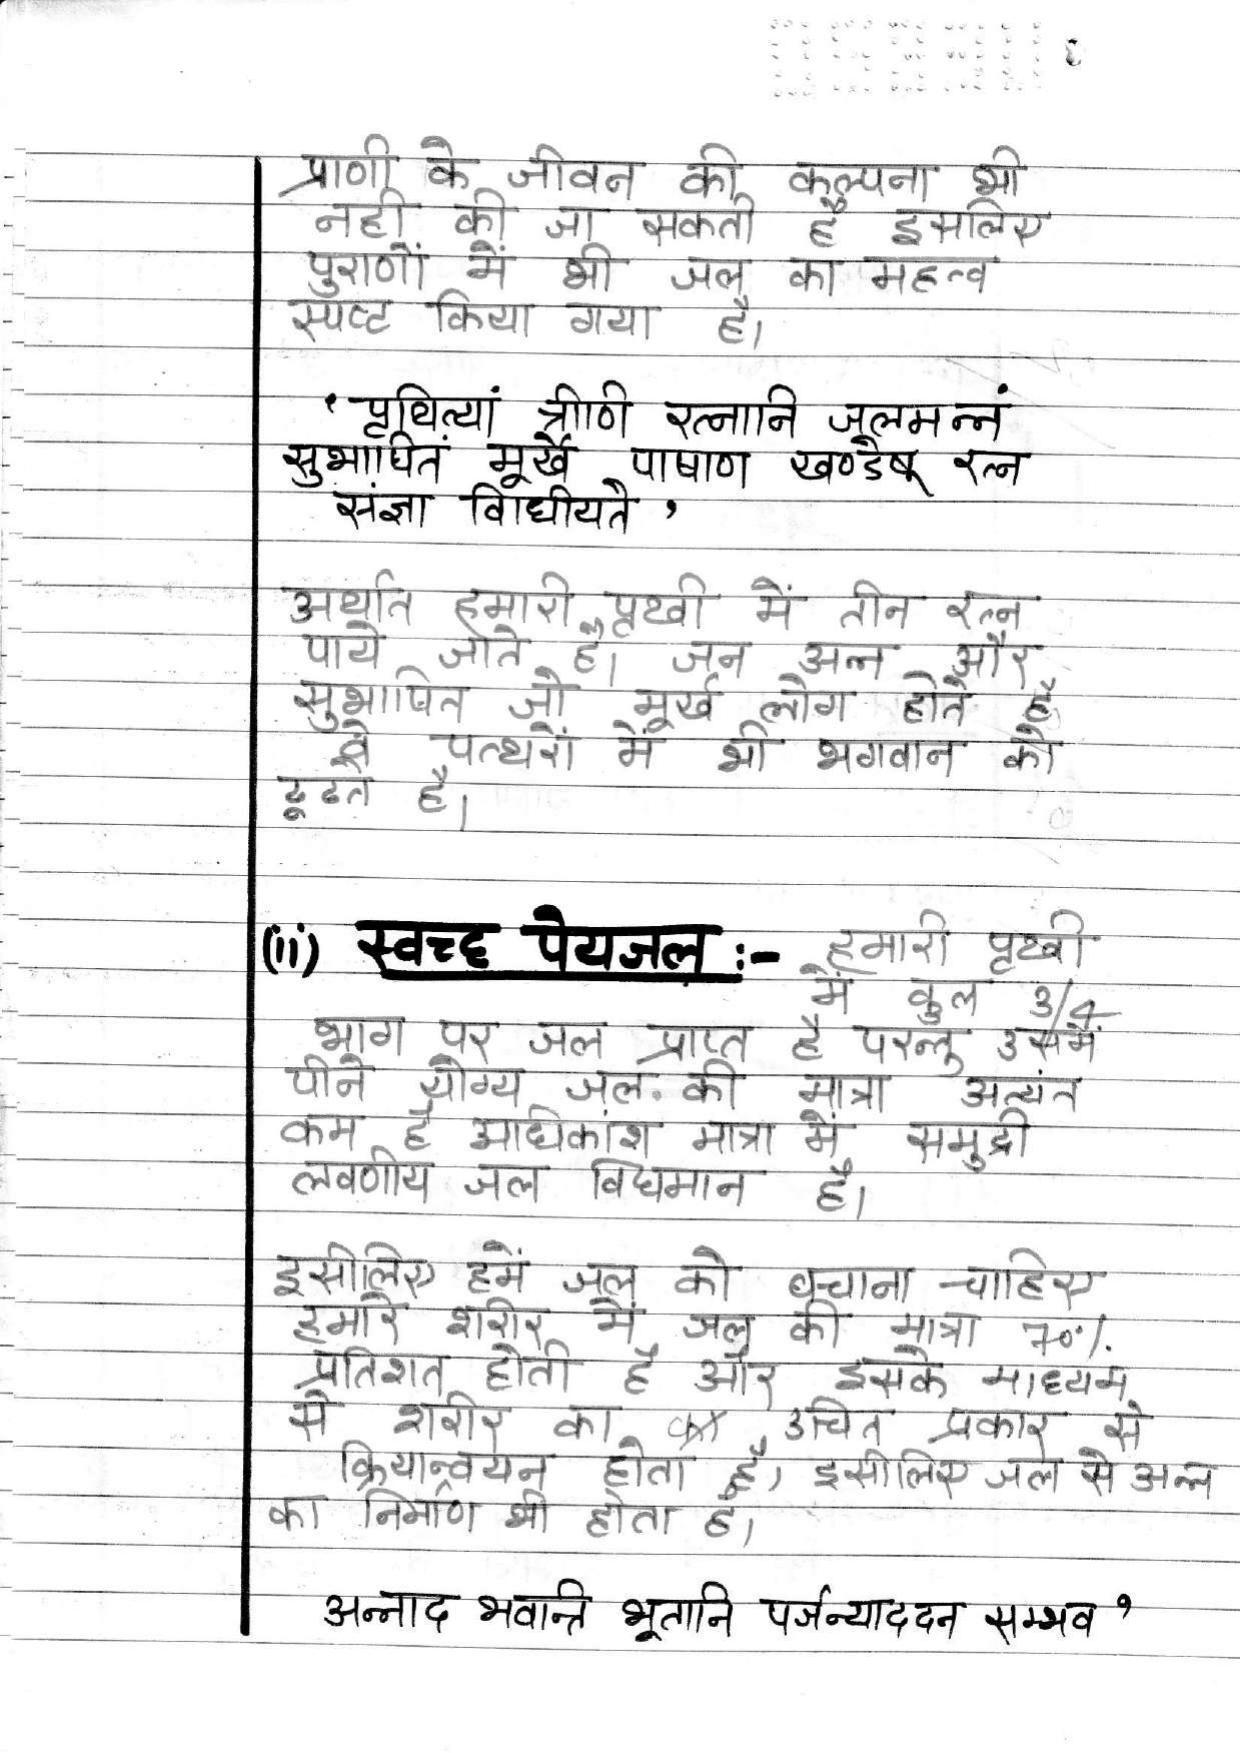 3
प्राणी के जीवन की कल्पना भी
नही की जा सकती है इसलिए
पुराणों में भी जल का महत्व
स्पष्ट किया गया है।
' पृथित्यां त्रीणि रत्नानि जलमन्नं
सुभाषितं मूर्खै पाषाण खण्डेषू रत्न
संज्ञा विधीयते '
अर्थात हमारी पृथ्वी में तीन रत्न
पाये जाते है। जन अन्न और
सुभाषित जो मूर्ख लोग होते है
वे पत्थरों में भी भगवान को
ढूढते है।
(ii) स्वच्छ पेयजल :- हमारी पृथ्वी
में कुल 3/4
भाग पर जल प्राप्त है परन्तु उसमें
पीने योग्य जल की मात्रा अत्यंत
कम है अधिकांश मात्रा में समुद्री
लवणीय जल विधमान है।
इसीलिए हमें जल को बचाना चाहिए
हमारे शरीर में जल की मात्रा 70%
प्रतिशत होती है और इसके माध्यम
से शरीर का उचित प्रकार से
क्रियान्वयन होता है। इसीलिए जल से अन्न
का निर्माण भी होता है।
अन्नाद भवान्ति भूतानि पर्जन्याददन सम्भव '